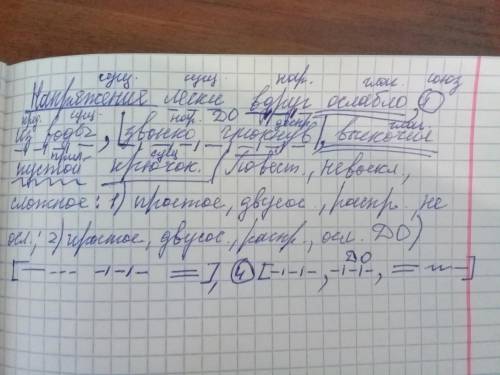 сущ. сущ. нар. глаг. союз
Напряжение лески вдруг ослабло, и
пред. сущ. нар. ДО деепр. глаг.
из воды, звонко чпокнув, выскочил
прил. сущ.
пустой крючок. (Повест., невоскл.,
сложное: 1) простое, двусос., распр., не
осл.; 2) простое, двусос., распр., осл. ДО)
ДО
[ ], и [ , , ]